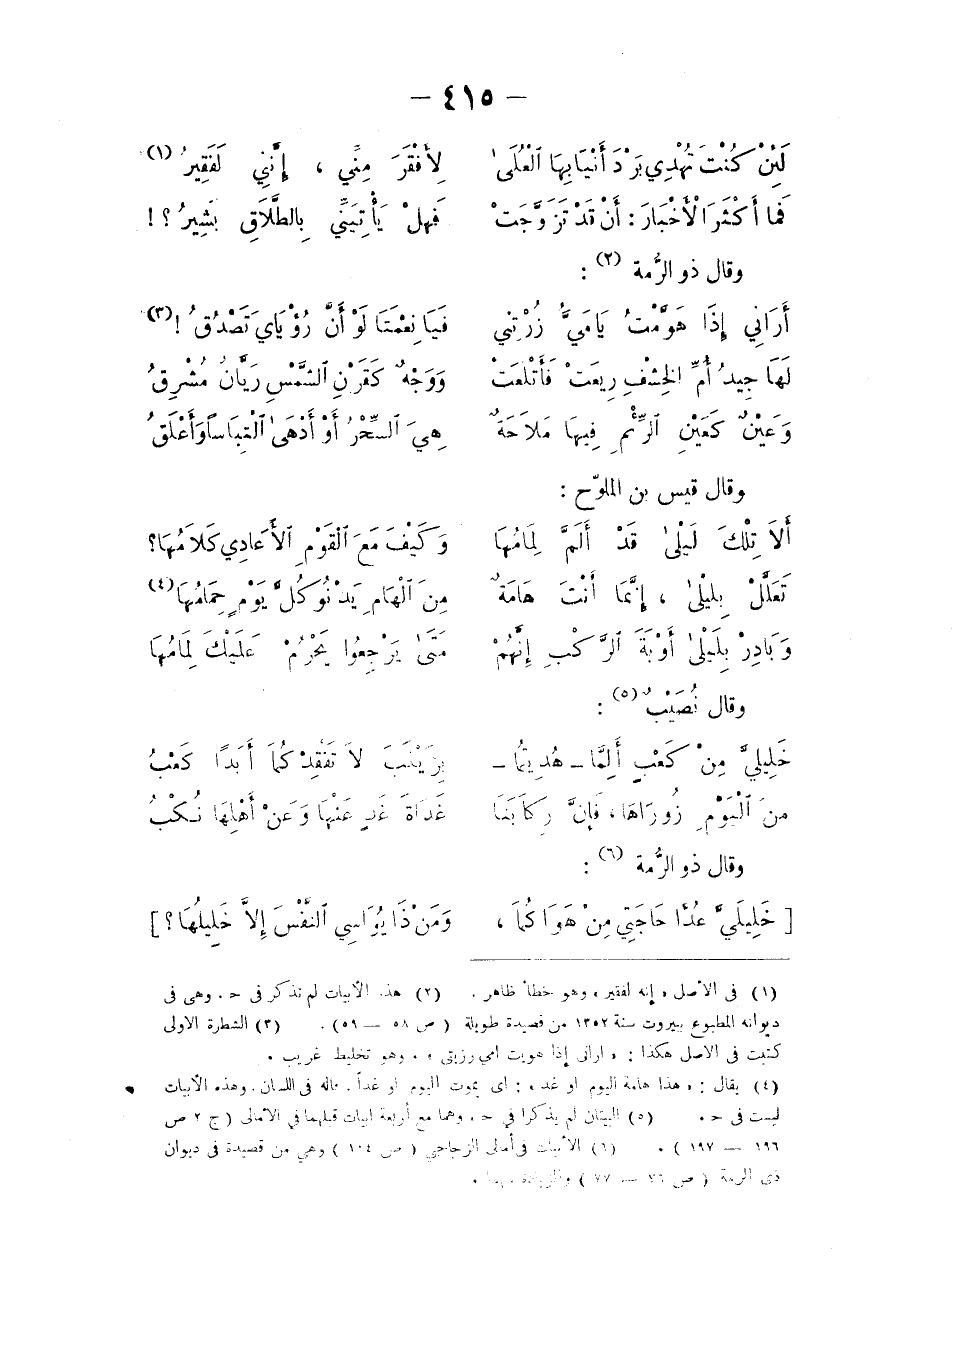 — ٤١٥ —
لَئِنْ كُنْتَ تُهْدِي بَرْدَ أَنْيَابِهَا ٱلْعُلَىٰ لِأَفْقَرَ مِنِّي ، إِنَّنِي لَفَقِيرُ (١)
فَمَا أَكْثَرَ ٱلْأَخْبَارَ : أَنْ قَدْ تَزَوَّجَتْ فَهلْ يَأْتِيَنِّي بِالطَّلَاقِ بَشِيرُ ؟ !
وقال ذو الرُّمة (٢) :
أَرَانِي إِذَا هَوَّمْتُ يَا مَيُّ زُرْتِنِي فَيَا نِعْمَتَا لَوْ أَنَّ رُؤْيَايَ تَصْدُقُ ! (٣)
لَهَا جِيدُ أُمِّ الخِشْفِ رِيعَتْ فَأَتْلَعَتْ وَوَجْهٌ كَقَرْنِ ٱلشَّمْسِ رَيَّانُ مُشْرِقُ
وَعَيْنٌ كَعَيْنِ ٱلرِّئْمِ فِيهَا مَلَاحَةٌ هِيَ ٱلسِّحْرُ أَوْ أَدْهَىٰ ٱلْتِبَاساً وَأَعْلَقُ
وقال قيس بن الملوّح :
أَلاَ تِلْكَ لَيْلَىٰ قَدْ أَلَمَّ لِمَامُهَا وَكَيْفَ مَعَ ٱلْقَوْمِ ٱلأَعَادِي كَلاَمُهَا ؟
تَعَلَّلْ بِلَيْلَىٰ ، إِنَّمَا أَنْتَ هَامَةٌ مِنَ ٱلْهَامِ يَدْنُو كُلَّ يَوْمٍ حِمَامُهَا (٤)
وَبَادِرْ بِلَيْلَىٰ أَوْبَةَ ٱلرَّكْبِ إِنَّهُمْ مَتَىٰ يَرْجِعُوا يَحْرُمْ عَلَيْكَ لِمَامُهَا
وقال نُصَيْبٌ (٥) :
خَلِيلَيَّ مِنْ كَعْبٍ أَلِمَّا ــ هُدِيتُمَا ــ بِزَيْنَبَ لاَ تَفْقِدْكُمَا أَبَدًا كَعْبُ
مِنَ ٱلْيَوْمِ زُورَاهَا، فَإِنَّ رِكَابَنَا غَدَاةَ غَدٍ عَنْهَا وَعَنْ أَهْلِهَا نُكْبُ
وقال ذو الرُّمة (٦) :
[ خَلِيلَيَّ عُدَّا حَاجَتِي مِنْ هَوَاكُمَا ، وَمَنْ ذَا يُوَاسِي ٱلنَّفْسَ إِلاَّ خَلِيلُهَا ؟ ]
(١) فى الأصل « إنه لفقير » وهو خطأ ظاهر . (٢) هذه الأبيات لم تذكر فى ح . وهى فى
ديوانه المطبوع ببيروت سنة ١٣٥٢ من قصيدة طويلة ( ص ٥٨ — ٥٩ ) . (٣) الشطرة الاولى
كتبت فى الاصل هكذا : « ارانى إذا هويت امى رزيتى » . وهو تخليط غريب .
(٤) يقال : « هذا هامة اليوم او غد » : اى يموت اليوم او غداً . قاله فى اللسان . وهذه الأبيات
ليست فى ح . (٥) البيتان لم يذكرا في ح ، وهما مع أربعة ابيات قبلهما في الأمالى ( ج ٢ ص
١٩٦ — ١٩٧ ) . (٦) الأبيات فى أمالى الزجاجي ( ص ١٠٤ ) وهي من قصيدة فى ديوان
ذى الرمة ( ص ٧٦ — ٧٧ ) والزيادة منهما .